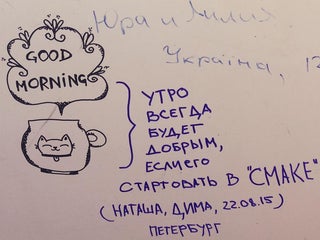 Юра и Лилия
Україна, 12
GOOD
MORNING
УТРО
ВСЕГДА
БУДЕТ
ДОБРЫМ,
ЕСЛИ ЕГО
СТАРТОВАТЬ В "СМАКЕ"
(НАТАША, ДИМА, 22.08.15)
ПЕТЕРБУРГ